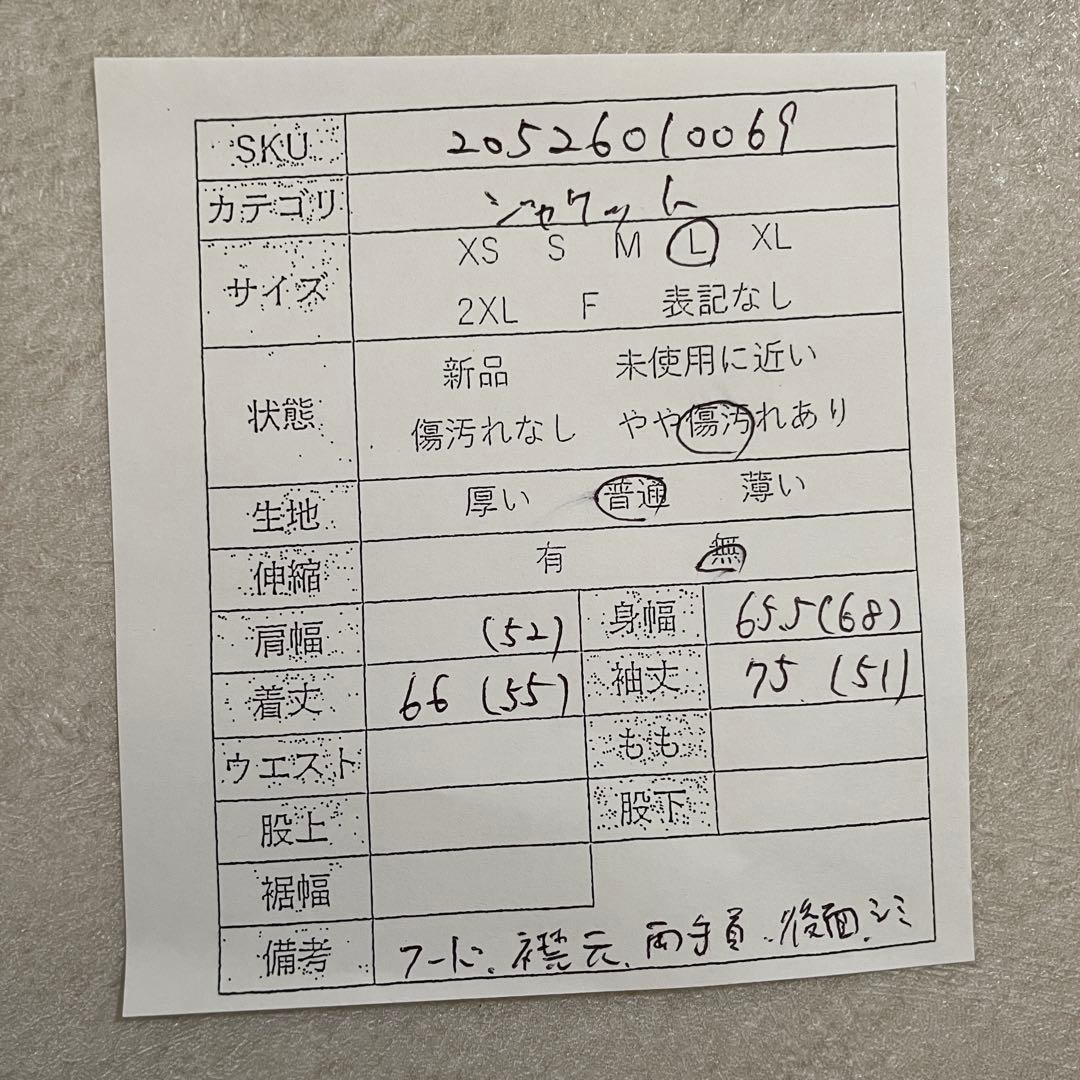 SKU 20526010069
カテゴリ ジャケット
サイズ XS S M L XL
2XL F 表記なし
状態 新品 未使用に近い
傷汚れなし やや傷汚れあり
生地 厚い 普通 薄い
伸縮 有 無
肩幅 (52) 身幅 65.5(68)
着丈 66 (55) 袖丈 75 (51)
ウエスト もも
股上 股下
裾幅
備考 フード、襟元、両手首、後面、シミ